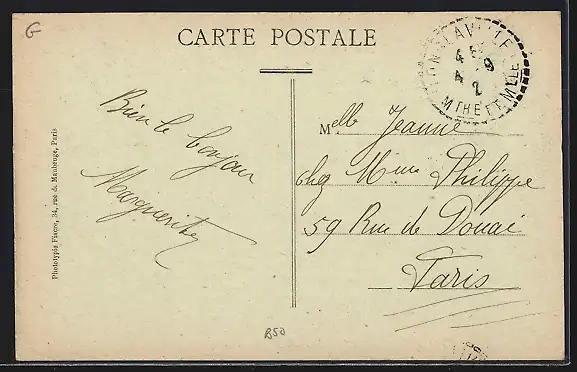 G
CARTE POSTALE
Bien le bonjour
Marguerite
Phototypie Fauvre, 34, rue d. Maubeuge, Paris
Melle Jeanne
chez Mme Philippe
59 Rue de Douai
Paris
LAVILLE
4 9
2
MTHE ET MLLE
B50